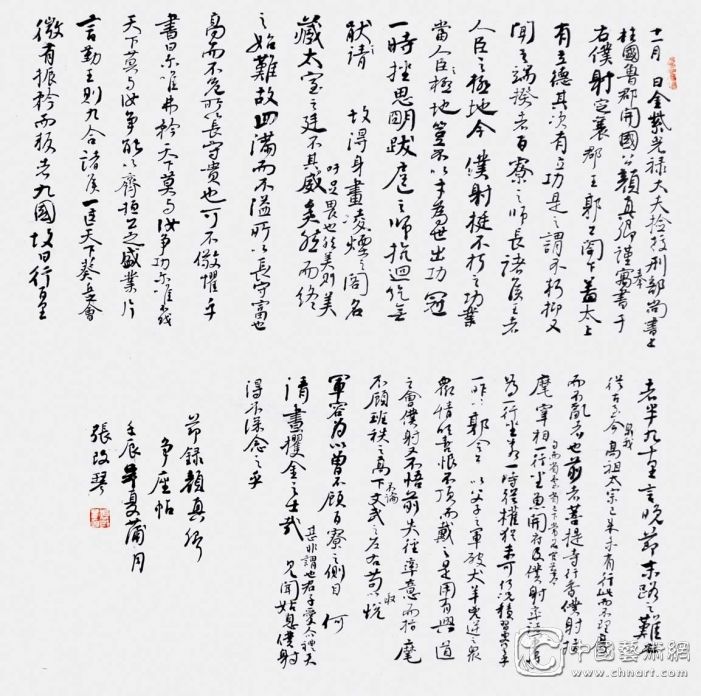 十一月 日金紫光禄大夫检校刑部尚書上
柱國魯郡開國公顔真卿謹奉寓書于
右僕射定襄郡王郭公閣下蓋太上
有立德其次有立功是之謂不朽抑又
聞之端揆者百寮之師長諸侯王者
人臣之極地今僕射挺不朽之功業
當人臣之極地豈不以才為世出功冠
一時挫思明跋扈之師抗迴紇無
猒之請 故得身畫凌煙之閣名
藏太室之廷不其盛矣然而終
吁足畏也然美則美
之始難故曰滿而不溢所以長守富也
高而不危所以長守貴也可不儆懼乎
書曰尔唯弗矜天下莫与汝争功尔唯不伐
天下莫与汝争能以齊桓公之盛業片
言勤王則九合諸侯一匡天下葵丘之會
微有振矜而叛者九國故曰行百里
者半九十里言晚節末路之難也
從古至今泉我高祖太宗已来未有行此而不理廢
而不亂者也前者菩提寺行香僕射指
麾宰相一行坐魚開府及僕射率諸軍將
為一行坐若一時從權猶未可何況積習更行之乎
一昨郭令公以父子之軍破犬羊凶逆之衆
衆情欣喜恨不頂而戴之是用有興道
之會僕射又不悟前失徑率意而指麾
不顧班秩之高下不論文武之左右苟以取悦
軍容為心曾不顧百寮之側目 何
清晝攫金之士哉
甚非謂也君子愛人以禮不
見聞姑息僕射
得不深念之乎
節録顔真卿
争座帖
壬辰年夏蒲月
張改琴
中國藝術網
www.chnart.com